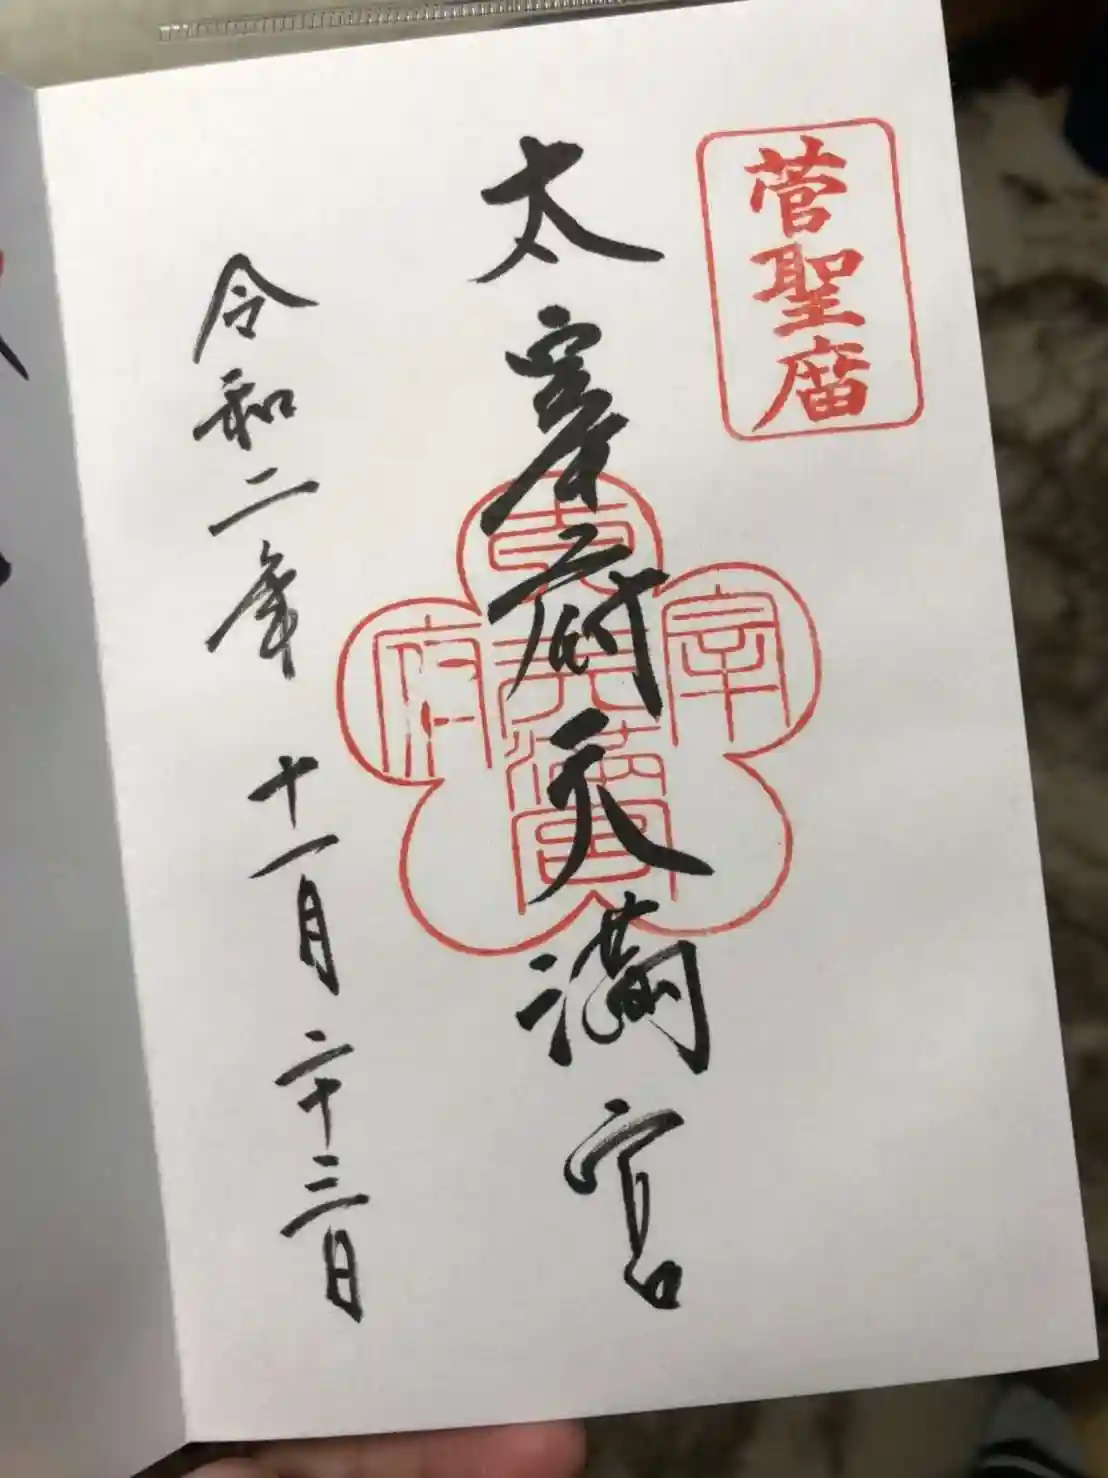 菅聖庿
太宰府天満宮
太宰府天満宮
令和二年 十一月二十三日